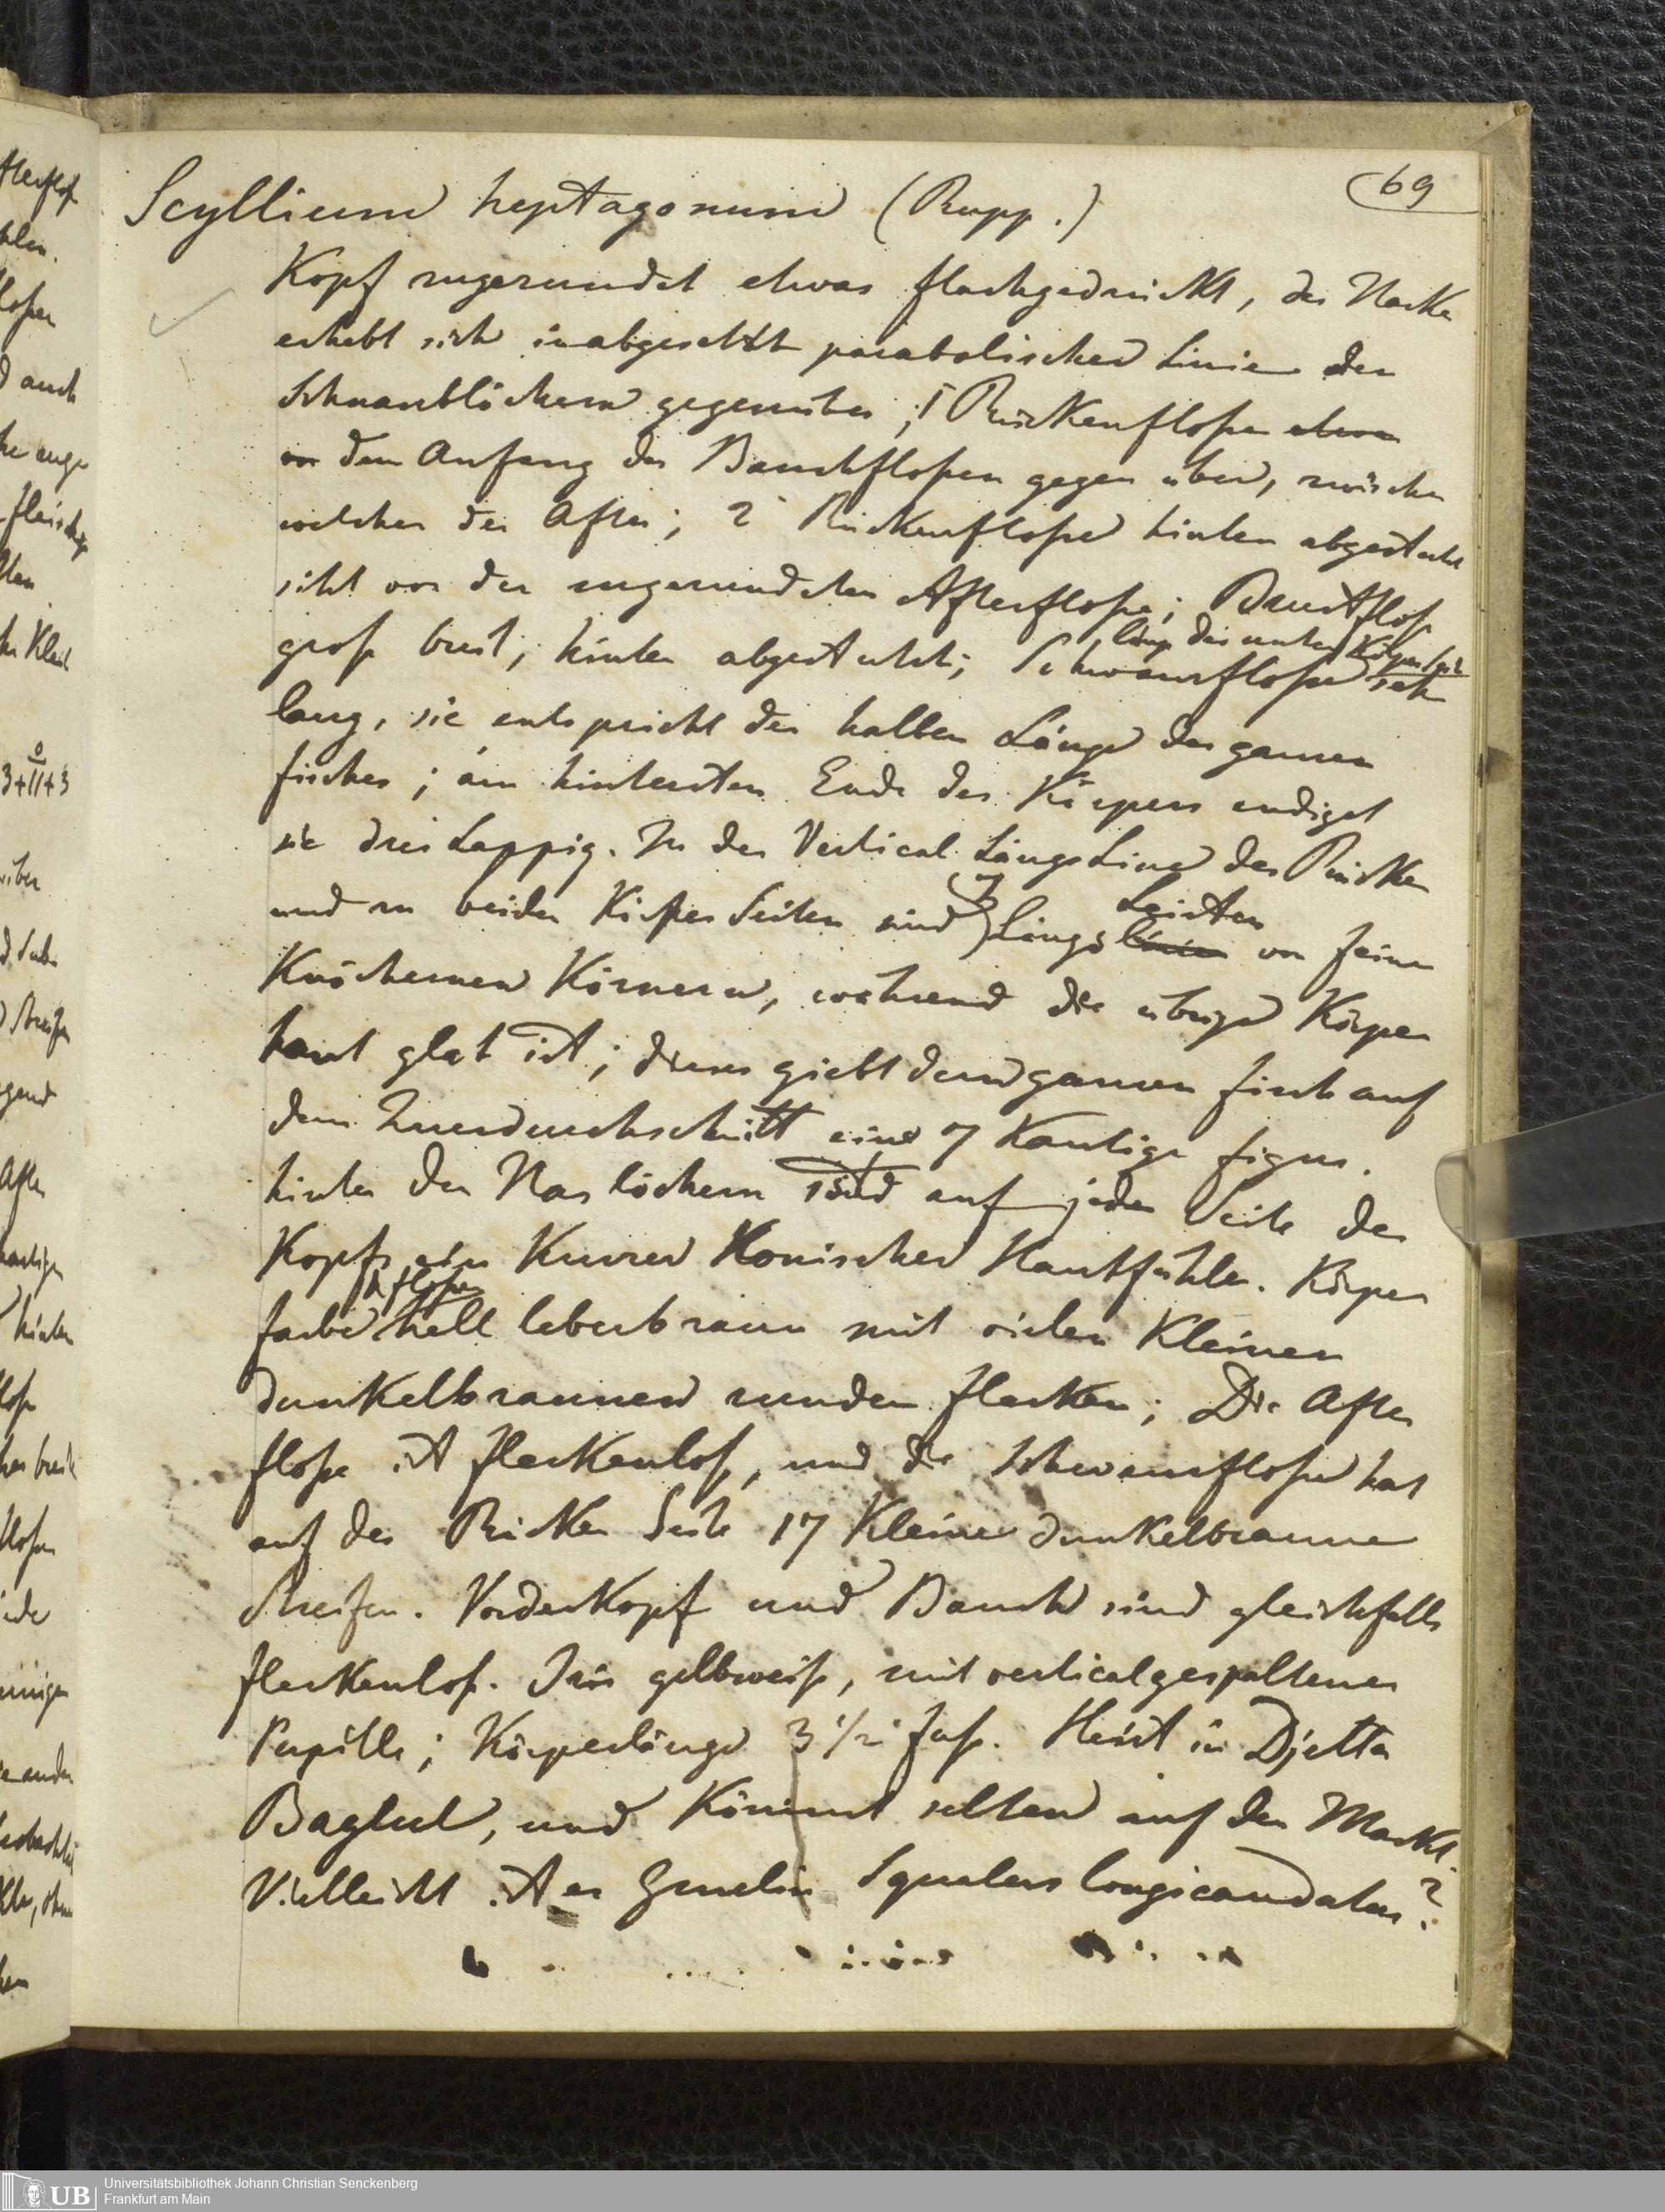 69
Scyllium heptagonum (Rupp.)
Kopf zugerundet etwas flachgedrückt, der Nacke
erhebt sich in abgesetzt parabolischer Linie den
gegenüber; 1 Rückenflosse etwa
vor dem Anfang der Bauchflossen gegen über, zwischen
welchen der After; 2 Rückenflosse hinten abgestutzt
sitzt vor der zugerundeten Afterflosse; Brustfloss
längs der unteren Körperseite
groß breit, hinten abgestutzt; Schwanzflosse sehr
lang, sie entspricht der halben Länge des ganzen
Fisches; am hintersten Ende des Körpers endiget
sie drei Lappig. In der Vertical LängsLinie des Rücken
7 Leisten
und zu beiden Körper Seiten sind Längs linien von feinen
Knöchernen Körnern, während die übrige Körper
haut glat ist; dieses giebt dem ganzen Fisch auf
dem Querdurchschnitt eine 7 Kantige Figur.
hinter den Naslöchern ist auf jeder Seite des
Kopfs ein Kurzer Konischer Hautfühler. Körper
& Flossen
farbe hell leberbraun mit vielen Kleinen
dunkelbraunen runden Flecken; Die After
flosse ist fleckenlos, und die Schwanzflosse hat
auf der Rücken Seite 17 Kleine dunkelbraune
Streifen. Vorderkopf und Bauch sind gleichfalls
fleckenlos. Iris gelbweiß, mit vertical gespaltener
Pupille; Körperlänge 3 1/2 Fuß. Heist in Djetta
Baghul, und Kömmt selten auf den Markt.
Vielleicht ist er Gmelin Squalus longicaudatus?
Universitätsbibliothek Johann Christian Senckenberg
Frankfurt am Main
UB